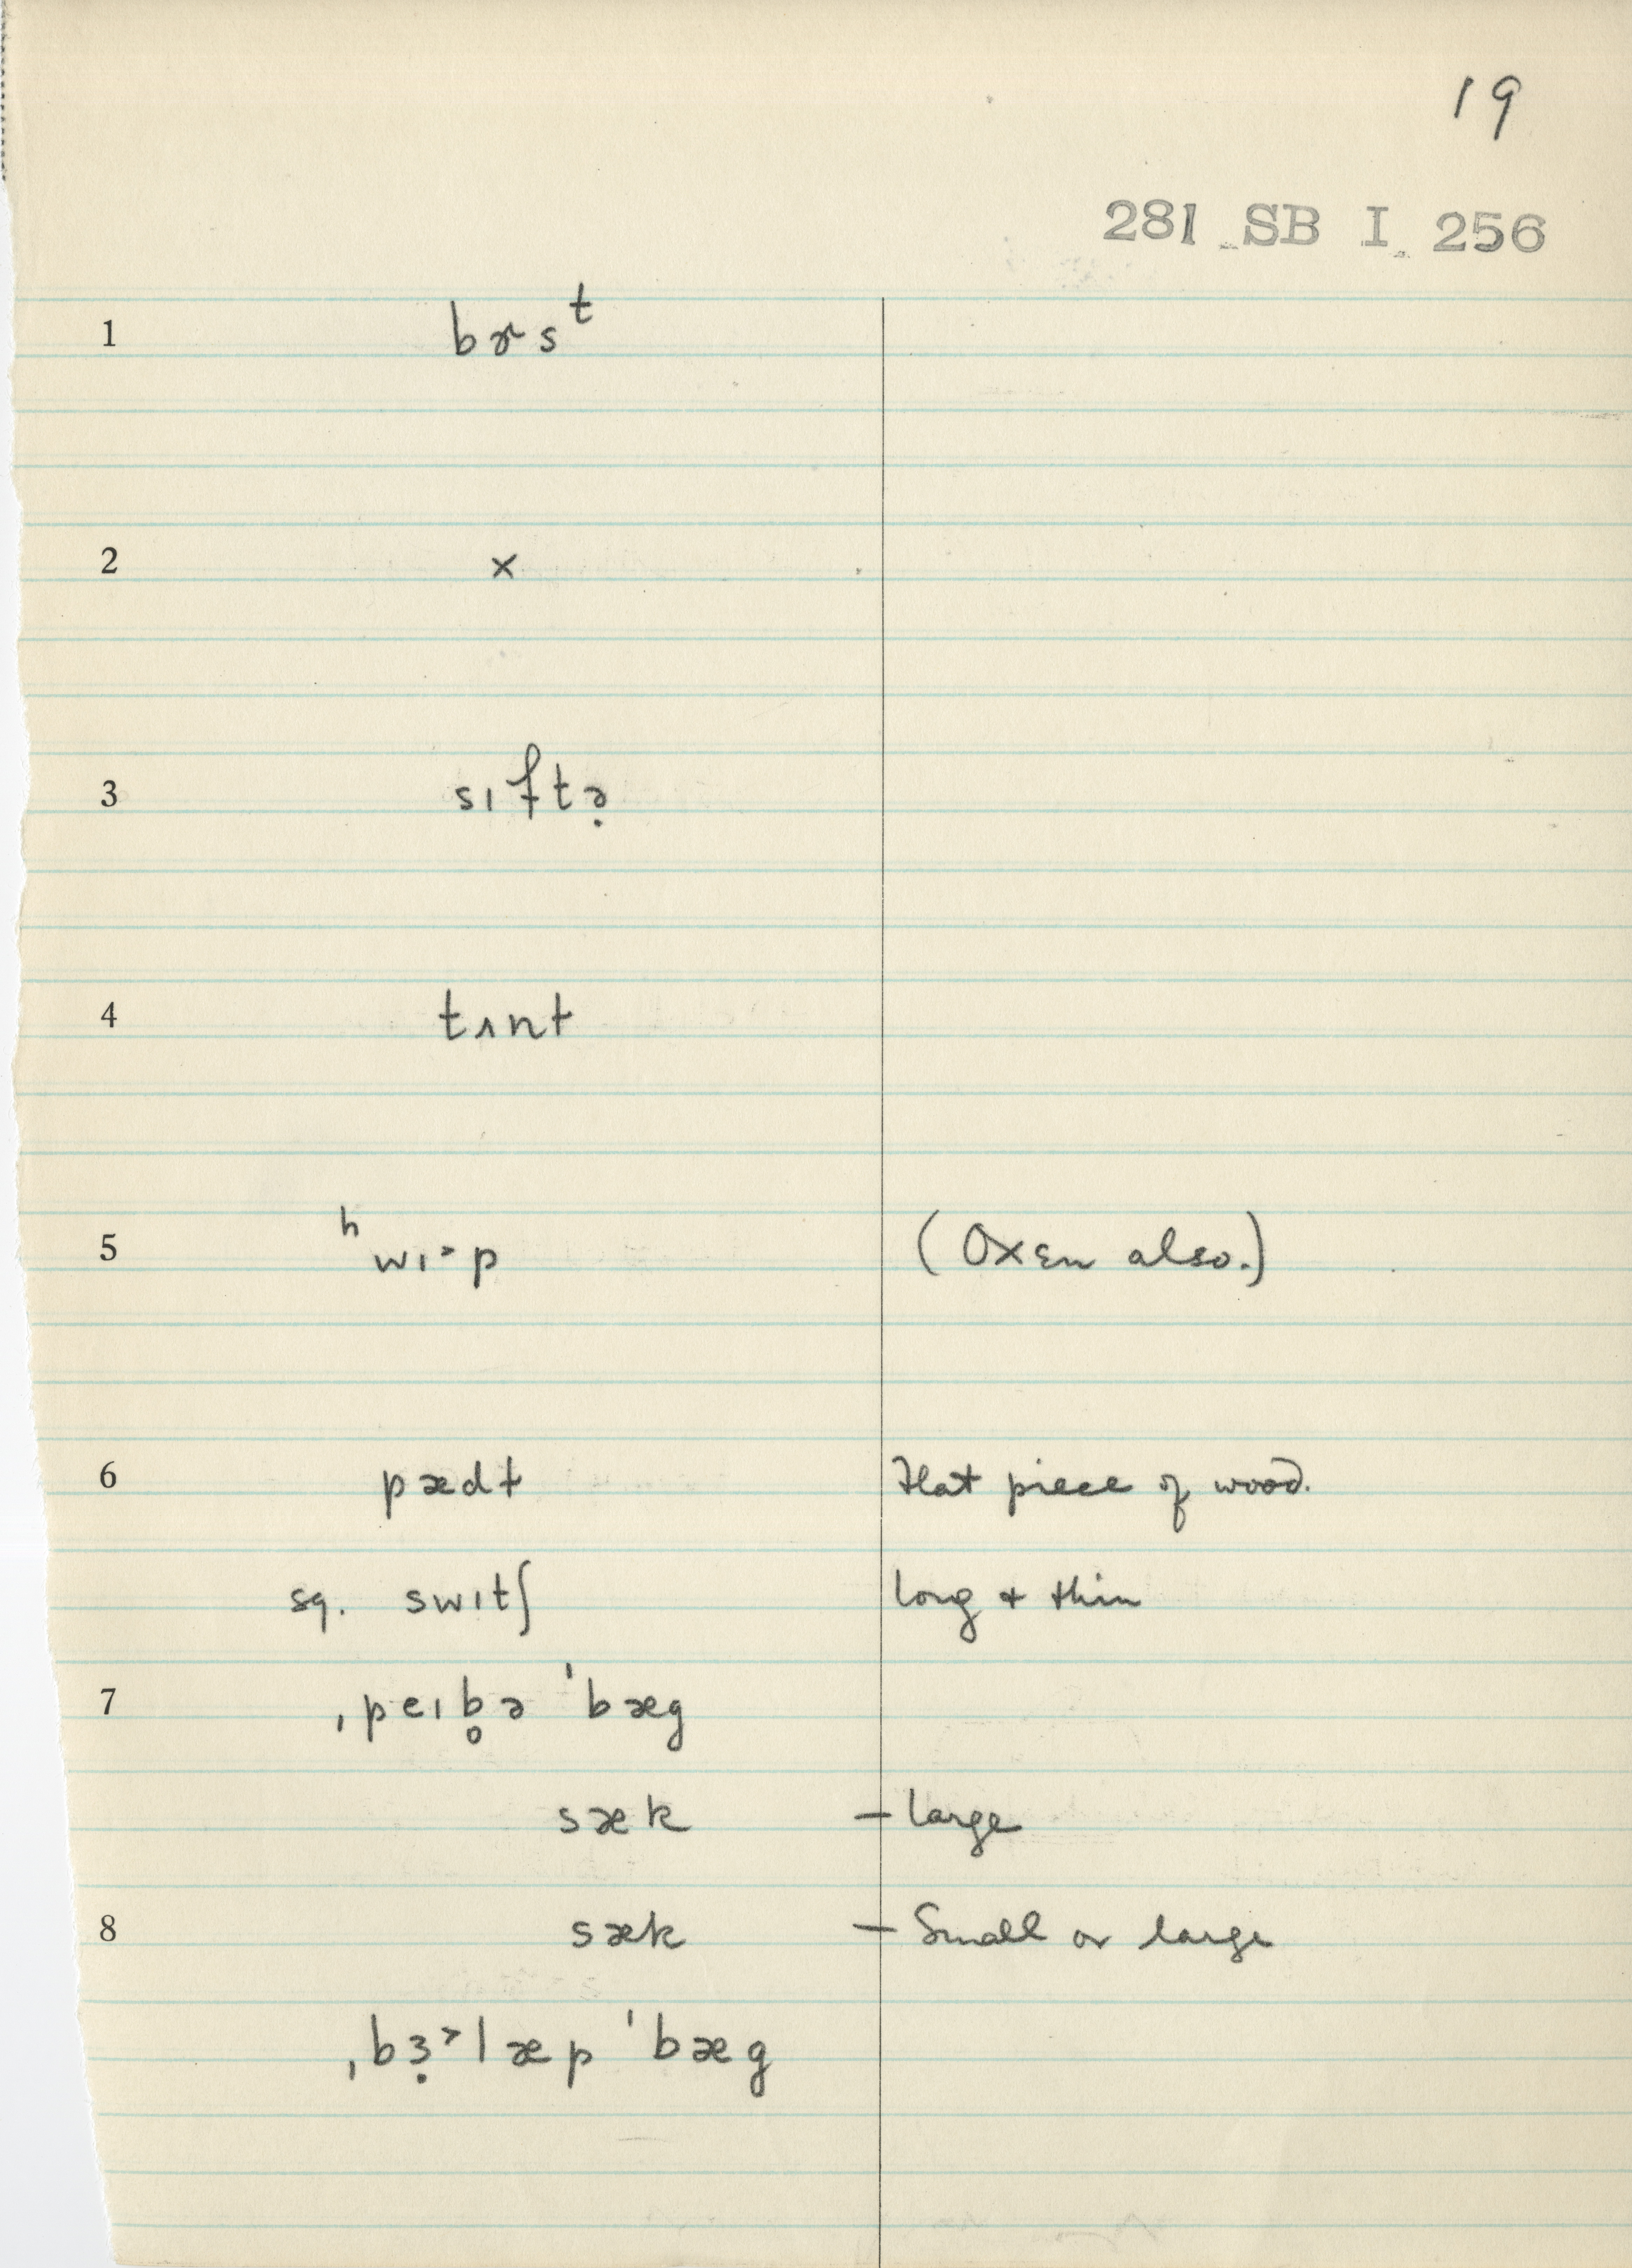 19
281 SB I 256
1 bɚsᵗ
2 x
3 sɪftə̣
4 tʌnt
5 ʰwɪ˃p (Oxen also.)
6 pædɫ Flat piece of wood.
sq. swɪtʃ long + thin
7 ˌpeɪb̥ə ˈbæg
sæk – large
8 sæk – Small or large
ˌbɜ̣˃læp ˈbæg